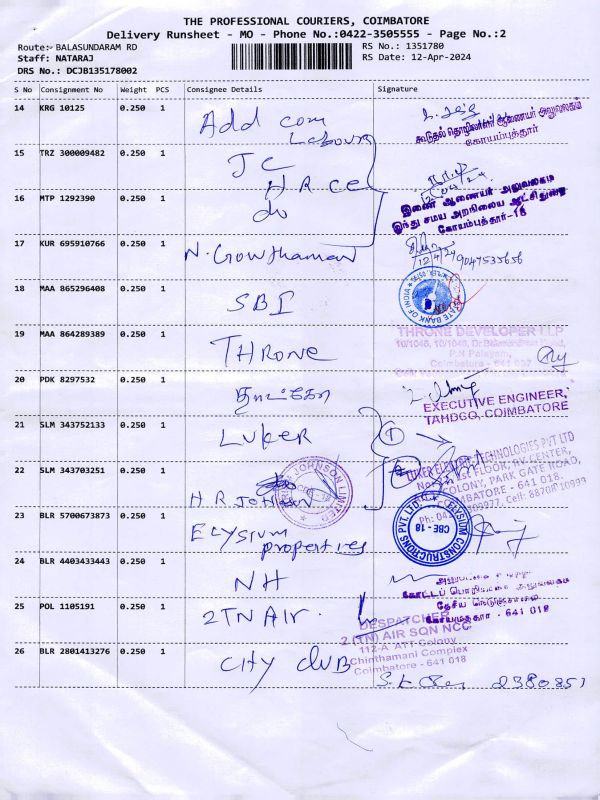 THE PROFESSIONAL COURIERS, COIMBATORE
Delivery Runsheet - MO - Phone No.:0422-3505555 - Page No.:2
Route:- BALASUNDARAM RD
RS No.: 1351780
Staff: NATARAJ
RS Date: 12-Apr-2024
DRS No.: DCJB135178002
S No Consignment No Weight PCS Consignee Details Signature
14 KRG 10125 0.250 1 Add com
Labour
கூடுதல் தொழிலாளர் ஆணையர் அலுவலகம்
கோயம்புத்தூர்
15 TRZ 300009482 0.250 1 JC
HR CE
16 MTP 1292390 0.250 1 do
இணை ஆணையர் அலுவலகம்
இந்து சமய அறநிலைய ஆட்சித்துறை
கோயம்புத்தூர்-18
17 KUR 695910766 0.250 1 N. Gowthaman
12/4/24 9047535656
18 MAA 865296408 0.250 1 SBI
STATE BANK OF INDIA
19 MAA 864289389 0.250 1 THRONE
THRONE DEVELOPER LLP
P.N Palayam,
Coimbatore - 641 037
20 PDK 8297532 0.250 1
EXECUTIVE ENGINEER,
TAHDCO, COIMBATORE
21 SLM 343752133 0.250 1 LUKER
1
TECHNOLOGIES PVT LTD
FLOOR, RV CENTER,
COLONY, PARK GATE ROAD,
COIMBATORE - 641 018.
22 SLM 343703251 0.250 1 H R Johnson
JOHNSON LIMITED
23 BLR 5700673873 0.250 1 ELYSIUM
properties
ELYSIUM CONSTRUCTIONS PVT LTD
CBE - 18
24 BLR 4403433443 0.250 1 NH
கோட்டப் பொறியாளர் அலுவலகம்
தேசிய நெடுஞ்சாலை
கோயமுத்தூர் - 641 018
25 POL 1105191 0.250 1 2TN AIR.
DESPATCHER
2 (TN) AIR SQN NCC
112-A ATT Colony
Chinthamani Complex
Coimbatore - 641 018
26 BLR 2801413276 0.250 1 CITY CLUB
2380851